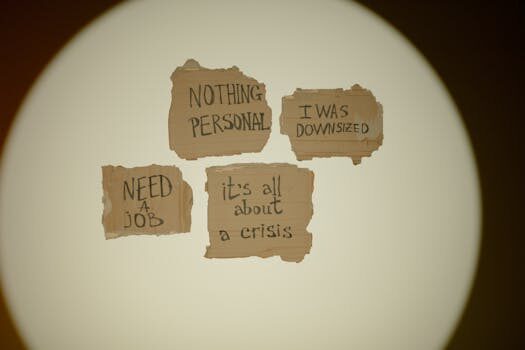 NOTHING
PERSONAL
I WAS
DOWNSIZED
NEED
A
JOB
it's all
about
a crisis